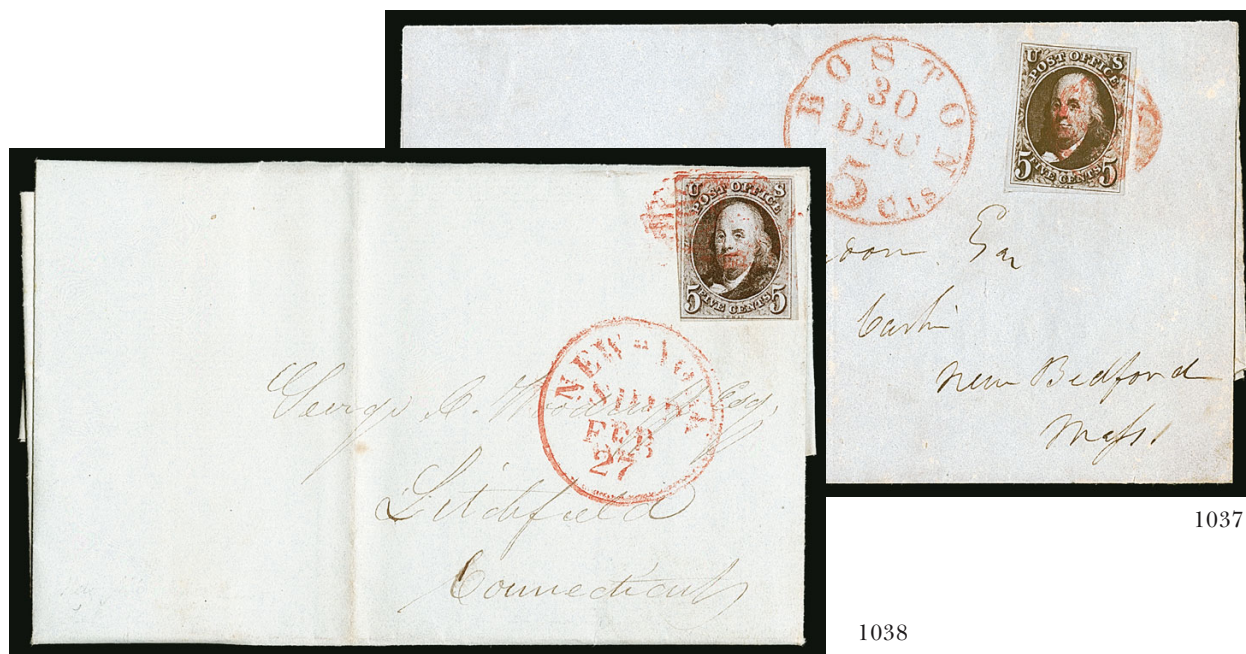 BOSTON
30
DEC
5
cts
U S
POST OFFICE
5 FIVE CENTS 5
Esq
Cashr
New Bedford
Mass.
1037
U S
POST OFFICE
5 FIVE CENTS 5
NEW-YO
FEB
27
George C. Woodruff Esq.
Litchfield
Connecticut
1038